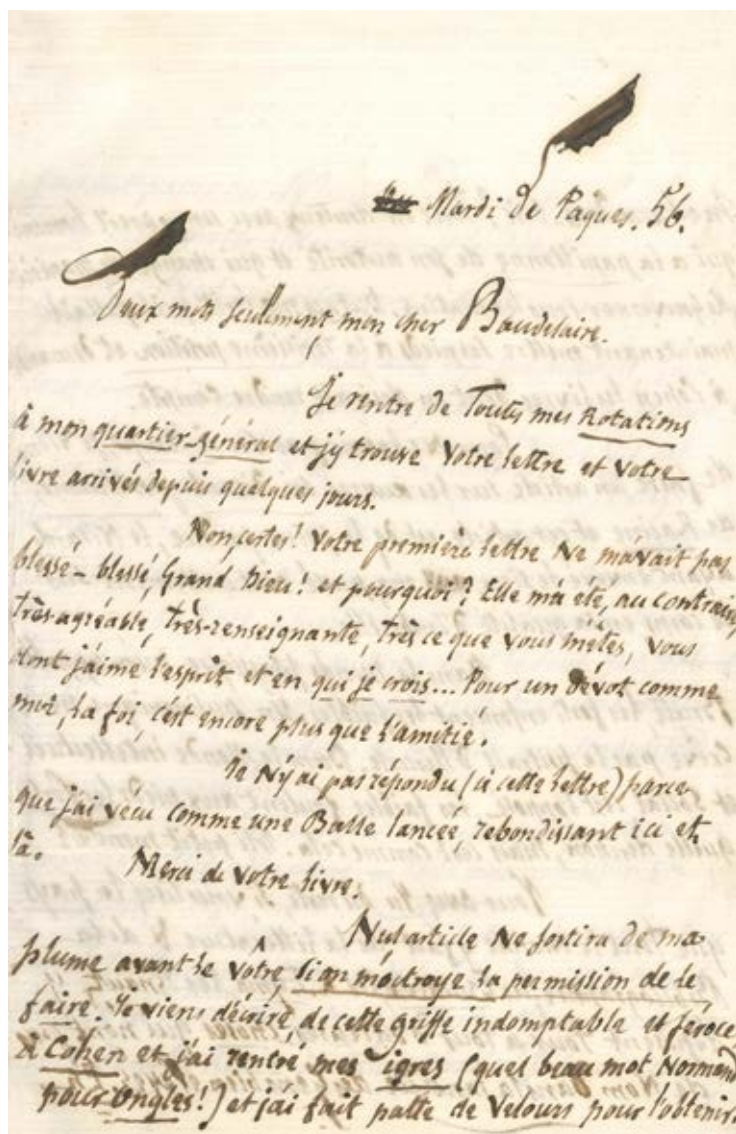 Mardi de Pâques. 56.
Deux mots seulement mon cher Baudelaire.
Je rentre de Toutes mes Rotations
à mon quartier-général et j'y trouve votre lettre et votre
livre arrivés depuis quelques jours.
Non, certes! Votre première lettre ne m'avait pas
blessé - blessé, Grand Dieu! et pourquoi? Elle m'a été, au contraire,
Très-agréable, Très-renseignante, Très ce que vous m'êtes, vous
dont j'aime l'esprit et en qui je crois... Pour un dévot comme
moi, la foi, c'est encore plus que l'amitié.
Je N'y ai pas répondu (à cette lettre) parce
que j'ai vécu comme une Balle lancée, rebondissant ici et
là.
Merci de votre livre.
Nul article Ne sortira de ma
plume avant le vôtre, si on m'octroye la permission de le
faire. Je viens d'écrire, de cette griffe indomptable et féroce,
à Cohen et j'ai rentré mes igres (quel beau mot Normand
pour ongles!) et j'ai fait patte de velours pour l'obtenir.